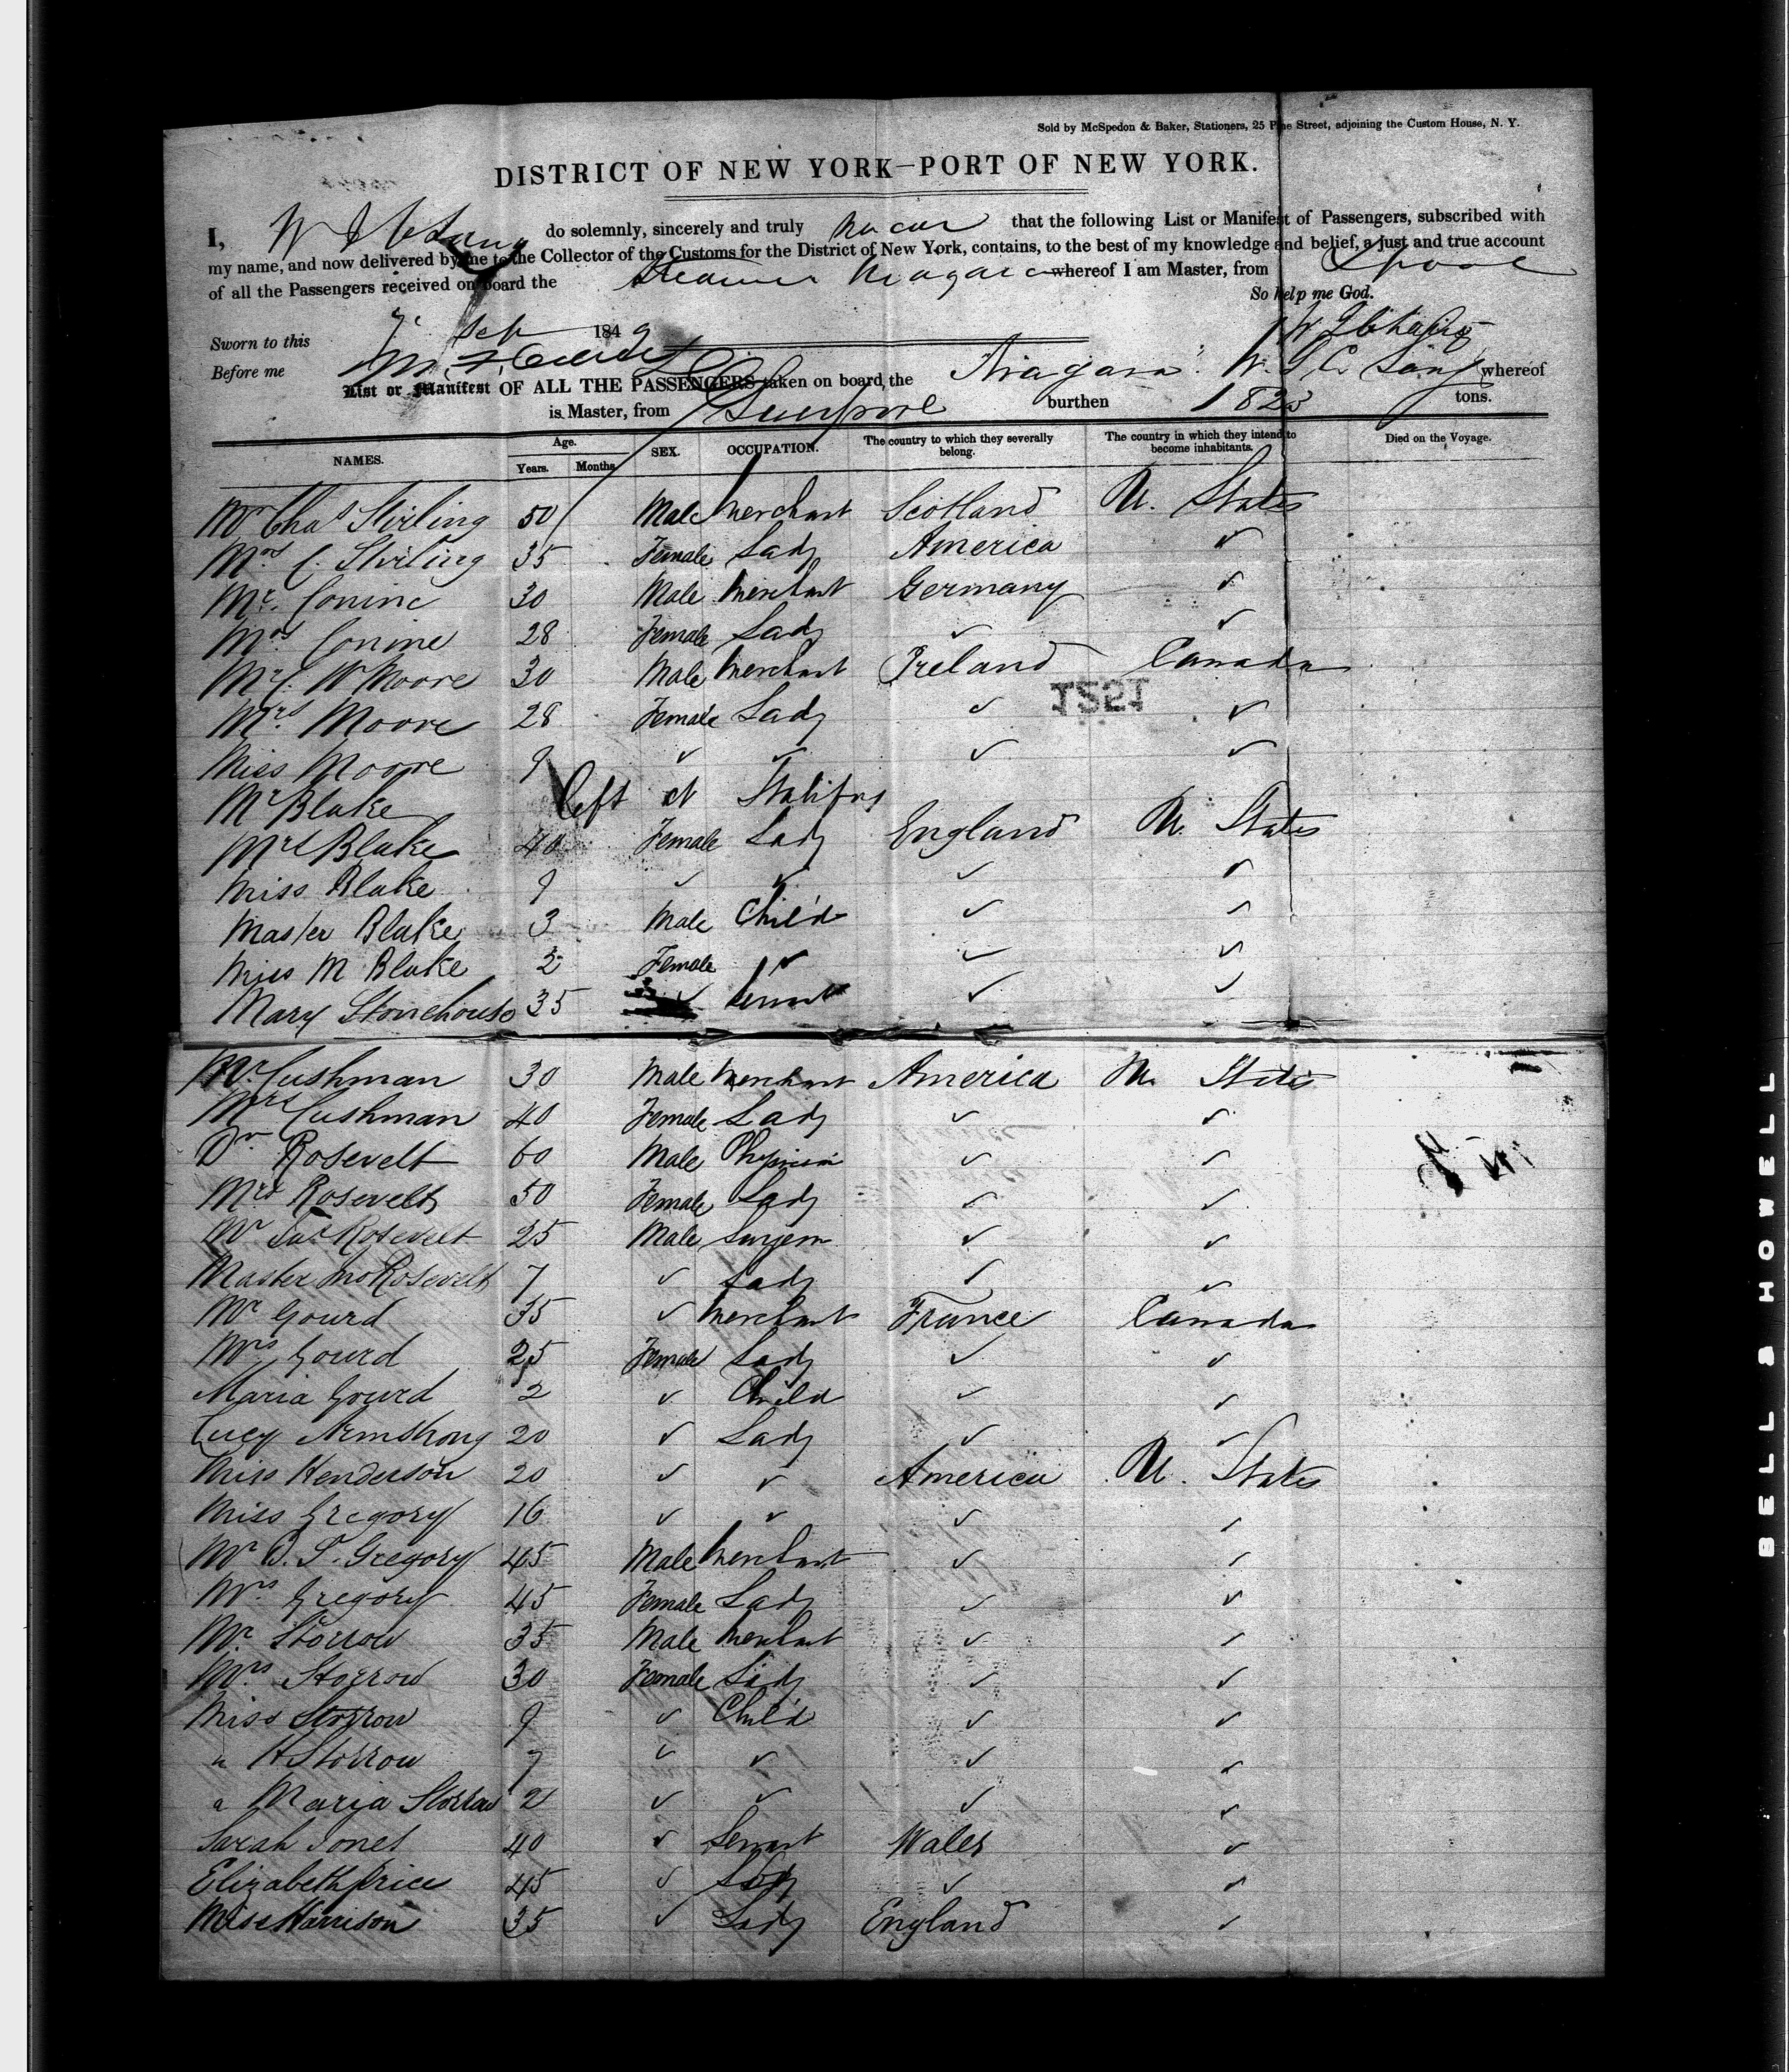 Sold by McSpedon & Baker, Stationers, 25 Pine Street, adjoining the Custom House, N. Y.
DISTRICT OF NEW YORK—PORT OF NEW YORK.
I, do solemnly, sincerely and truly that the following List or Manifest of Passengers, subscribed with
my name, and now delivered by me to the Collector of the Customs for the District of New York, contains, to the best of my knowledge and belief, a just and true account
of all the Passengers received on board the Steamer Niagara whereof I am Master, from Lpool
So help me God.
Sworn to this 7 Sep 1849
Before me
List or Manifest OF ALL THE PASSENGERS taken on board the Niagara whereof
is Master, from Liverpool burthen 1823 tons.
NAMES. Age. Years. Months. SEX. OCCUPATION. The country to which they severally belong. The country in which they intend to become inhabitants. Died on the Voyage.
Mr Chas Stirling 50 Male Merchant Scotland U. States
Mrs C. Stirling 35 Female Lady America ✓
Mr. Conine 30 Male Merchant Germany ✓
Mrs Conine 28 Female Lady ✓ ✓
Mr C. W Moore 30 Male Merchant Ireland Canada
1251
Mrs Moore 28 Female Lady ✓ ✓
Miss Moore 9 ✓ ✓ ✓ ✓
Mr Blake left at Halifax
Mrs Blake 40 Female Lady England U. States
Miss Blake 9 ✓ ✓ ✓ ✓
Master Blake 3 Male Child ✓ ✓
Miss M Blake 2 Female ✓ ✓ ✓
Mary Stonehouse 35 ✓ Servant ✓ ✓
Mr Cushman 30 Male Merchant America U. States
Mrs Cushman 40 Female Lady ✓ ✓
Dr Rosevelt 60 Male Physician ✓ ✓
Mrs Rosevelt 50 Female Lady ✓ ✓
Mr Jas Rosevelt 25 Male Surgeon ✓ ✓
Master Rosevelt 7 ✓ Lady ✓ ✓
Mr Gourd 35 ✓ Merchant France Canada
Mrs Gourd 25 Female Lady ✓ ✓
Maria Gourd 2 ✓ Child ✓ ✓
Lucy Armstrong 20 ✓ Lady ✓ ✓
Miss Henderson 20 ✓ ✓ America U. States
Miss Gregory 16 ✓ ✓ ✓ ✓
Mr D. S. Gregory 45 Male Merchant ✓ ✓
Mrs Gregory 45 Female Lady ✓ ✓
Mr. Storrow 35 Male Merchant ✓ ✓
Mrs. Storrow 30 Female Lady ✓ ✓
Miss Storrow 9 ✓ Child ✓ ✓
" H Storrow 7 ✓ ✓ ✓ ✓
" Maria Storrow 2 ✓ ✓ ✓ ✓
Sarah Jones 40 ✓ Servant Wales ✓
Elizabeth Price 45 ✓ Lady ✓ ✓
Miss Harrison 35 ✓ Lady England ✓
BELL & HOWELL